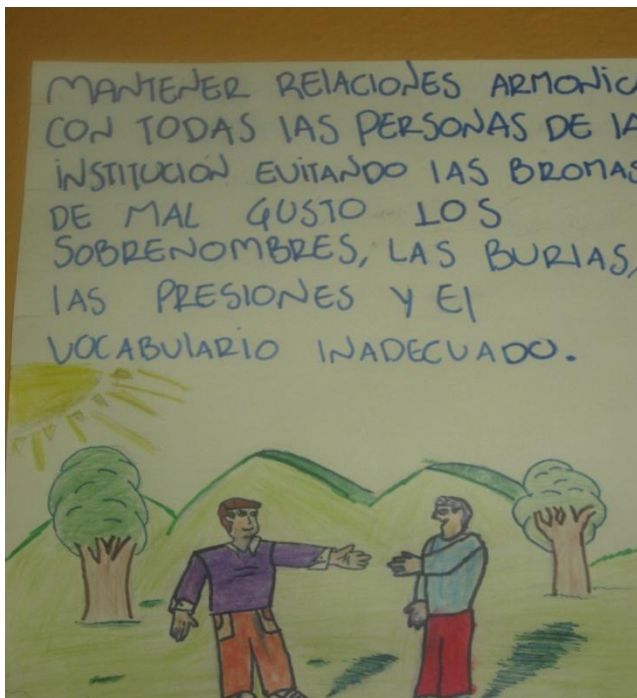 MANTENER RELACIONES ARMONIC
CON TODAS LAS PERSONAS DE LA
INSTITUCION EVITANDO LAS BROMAS
DE MAL GUSTO LOS
SOBRENOMBRES, LAS BURLAS,
LAS PRESIONES Y El
VOCABULARIO INADECUADO.